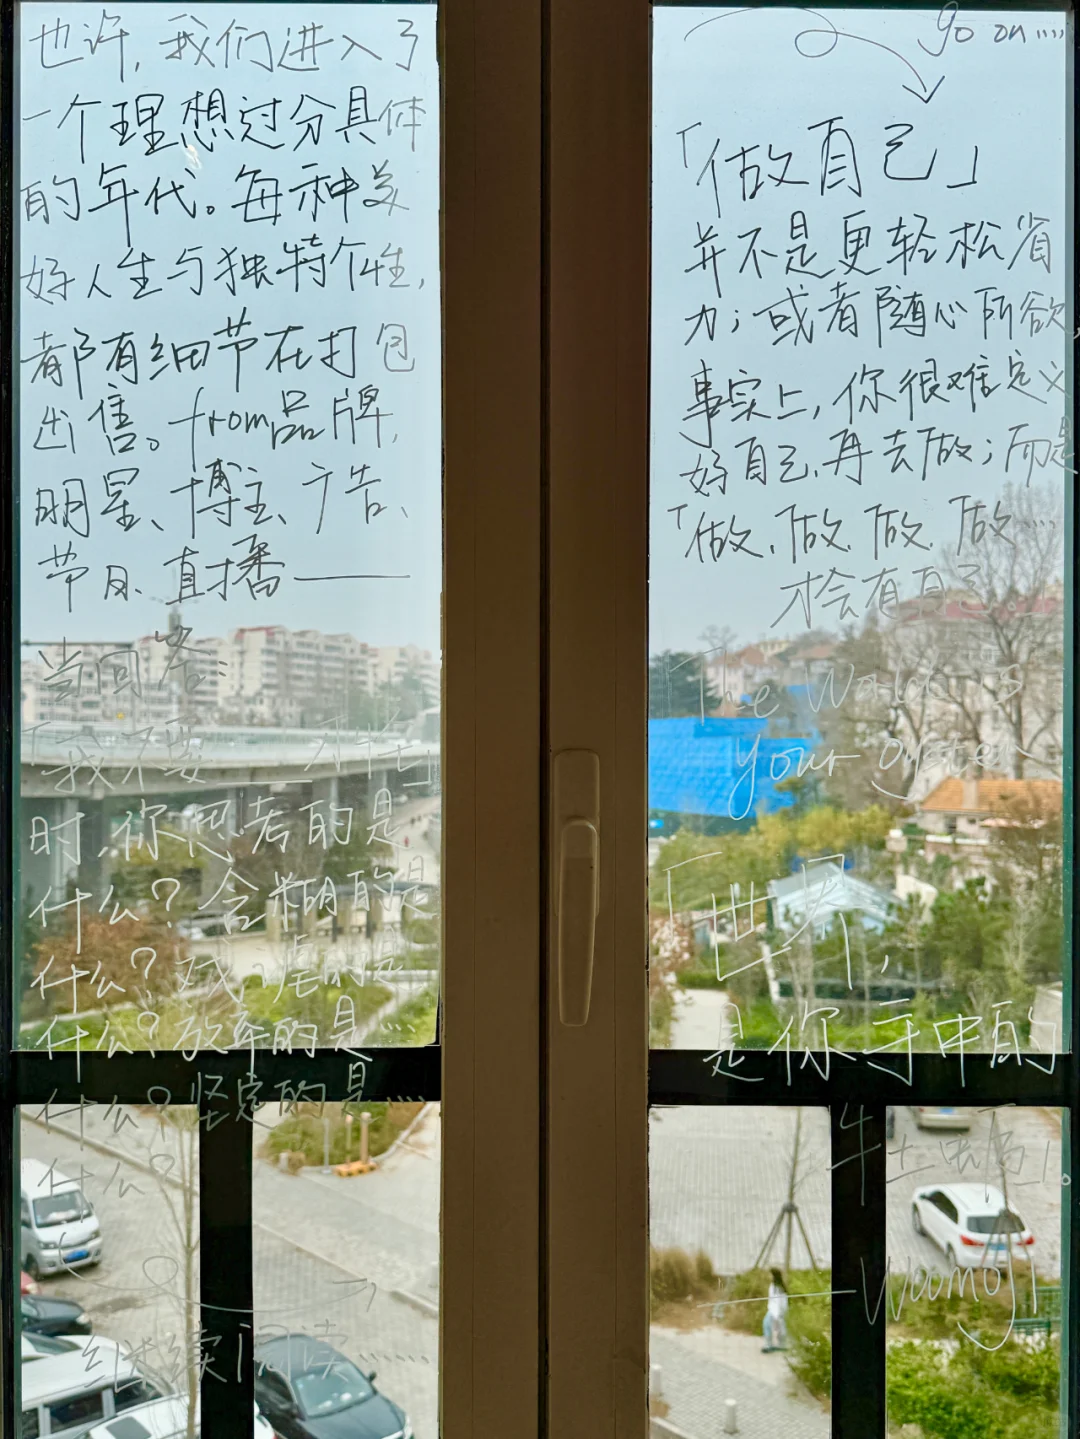 也许,我们进入了
一个理想过分具体
的年代。每种美
好人生与独特个性,
都有细节在打包
出售。from品牌,
明星、博主、广告、
节日、直播——
当回答:
「我不要___才怪」
时,你思考的是
什么?含糊的是
什么?戏虐的是
什么?放弃的是……
什么?坚定的是……
什么?
继续阅读……
go on....
「做自己」
并不是更轻松省
力;或者随心所欲,
事实上,你很难定义
好自己,再去做;而是
「做、做、做、做……
才会有自己。
The World is
your oyster
「世界,
是你手中的
牡蛎」。
——Woomoji